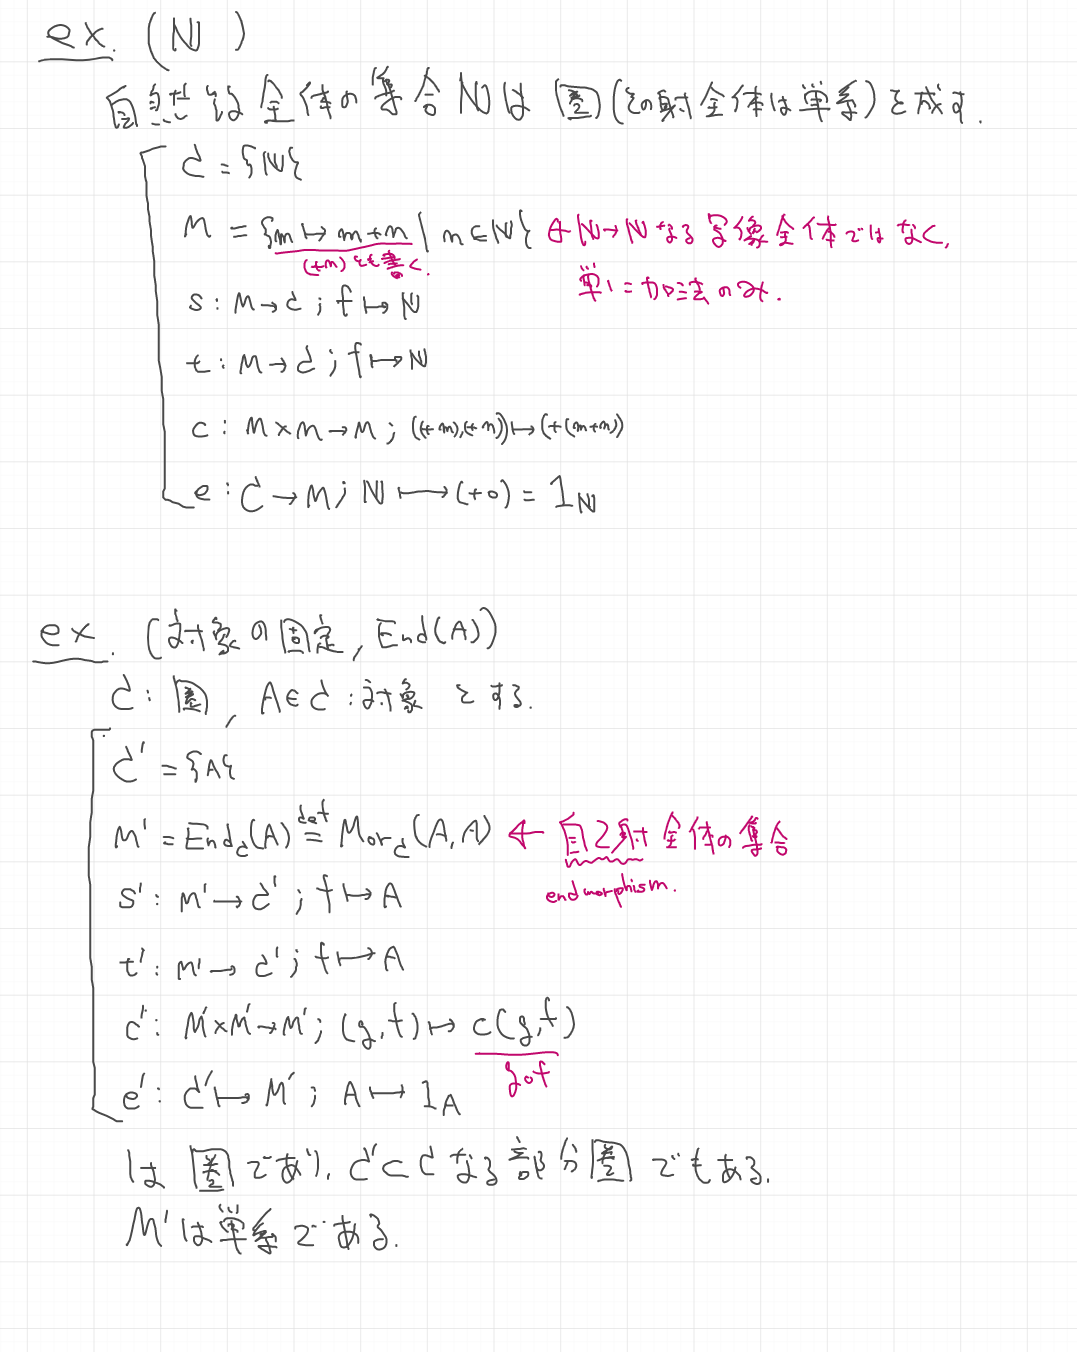 ex. (ℕ)
自然数全体の集合ℕは圏(その射全体は単系)を成す.
C = {ℕ}
M = {m ↦ m+n | n∈ℕ} ← ℕ→ℕ なる写像全体ではなく,
(+n) とも書く.
単に加法のみ.
s : M → C ; f ↦ ℕ
t : M → C ; f ↦ ℕ
c : M × M → M ; ((+m),(+n)) ↦ (+(m+n))
e : C → M ; ℕ ⟼ (+0) = 1_ℕ
ex. (対象の固定, End(A))
C : 圏, A∈C : 対象 とする.
C' = {A}
M' = End_C(A) def= Mor_C(A,A) ← 自己射全体の集合
endmorphism.
s' : M' → C' ; f ↦ A
t' : M' → C' ; f ↦ A
c' : M'×M' → M' ; (g,f) ↦ c(g,f)
g∘f
e' : C' ↦ M' ; A ↦ 1_A
は 圏であり, C'⊂C なる部分圏でもある.
M'は単系である.